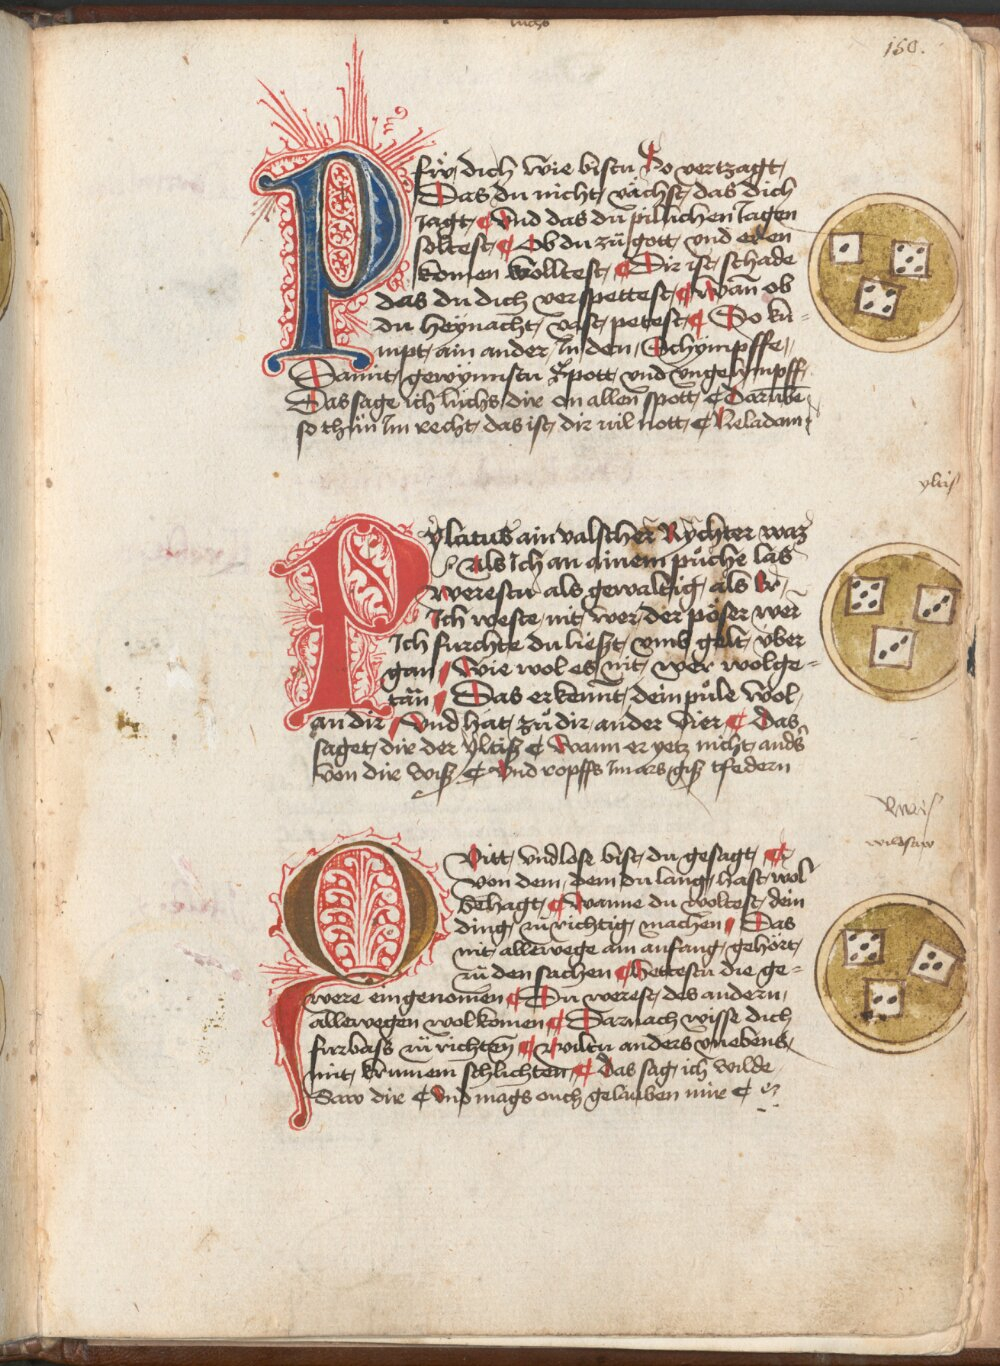 luchs
150.
Pfüy dich wie bistu so vertzagt
Das du nicht vichst das dich
Jagt Vnd das du pillichen Jagen
soltest Ob du zü gott vnd eren
komen wolltest Dir ist schade
das du dich verspettest wann ob
du heynacht vast petest So ku-
mpt ain ander In den Schympffe
Damit gewynnstu Spott vnd vngelympff
Das sage ich luchs dir on allen spott Darumbe
so thün Im recht das ist dir vil nott
yltis
Pylatus ain valscher Rychter waz
Als Ich an ainem püche las
werestu als gewaltig als Er
Ich weste nit wer der pöser wer
Ich furchte du lieszt vmb gelt vber
gan Wie wol es nit wer wolge-
tan Das erkennt dein püle wol
an dir Vnd hat zü dir ander vier Das
saget dir der yltisz wann er yetz nicht anders
von dir waisz Vnd ropffs Im ars
wildsaw
Qvitt vnd lose bist du gesagt
Von dem dem du lang hast wol
behagt wanne du woltest dein
ding zü richtig machen Das
nit allewege am anfang gehört
zü den sachen Hettestu die ge-
were ein genomen Du werest des andern
allewegen wol komen Darnach wisse dich
furbass zü richten wiltu anders vnebens
mit krumem schlichten Das sag ich wilde
Saw dir Vnd mags ouch gelauben mir